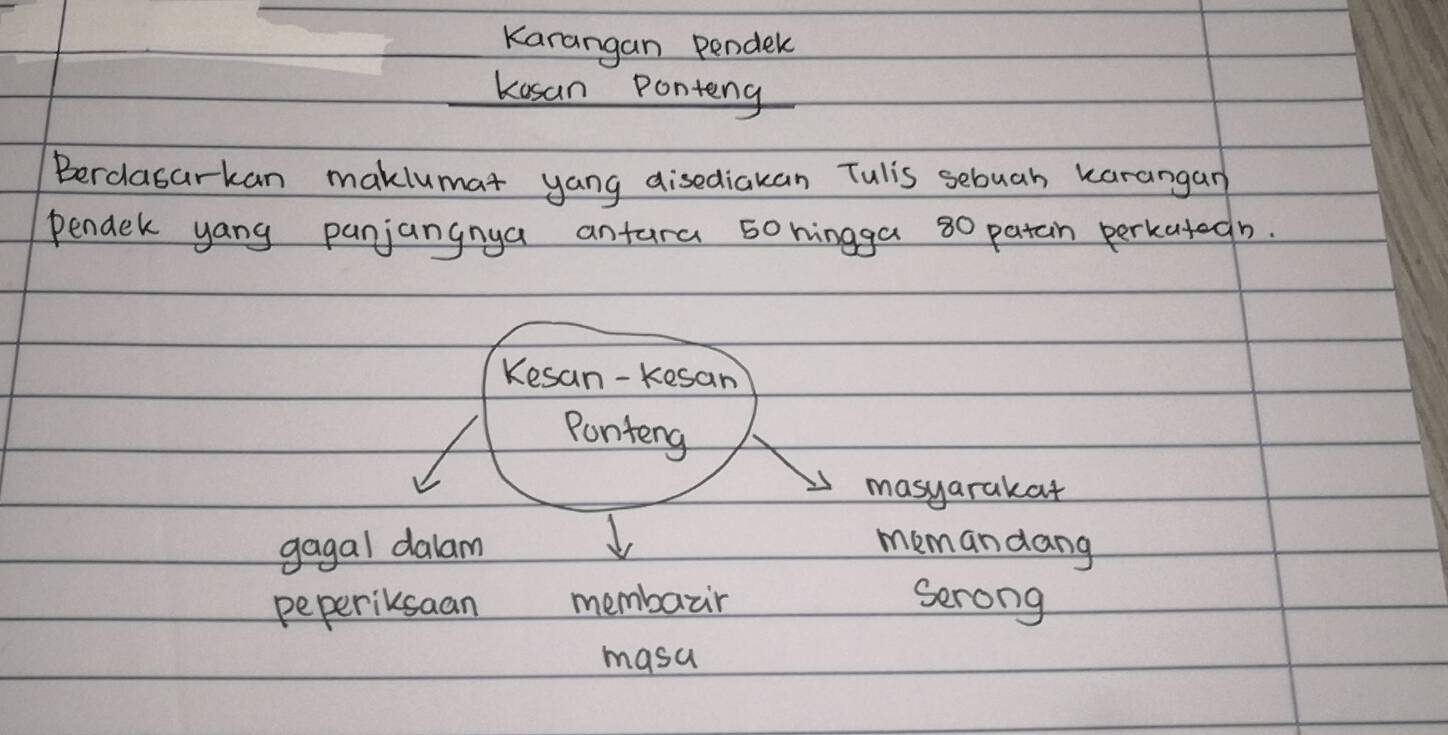 Karangan pendek
Kesan Ponteng
Berdasarkan maklumat yang disediakan Tulis sebuah karangan
pendek yang panjangnya antara 50 hingga 80 patah perkataan.
Kesan-kesan
Ponteng
gagal dalam
peperiksaan
membazir
masa
masyarakat
memandang
serong